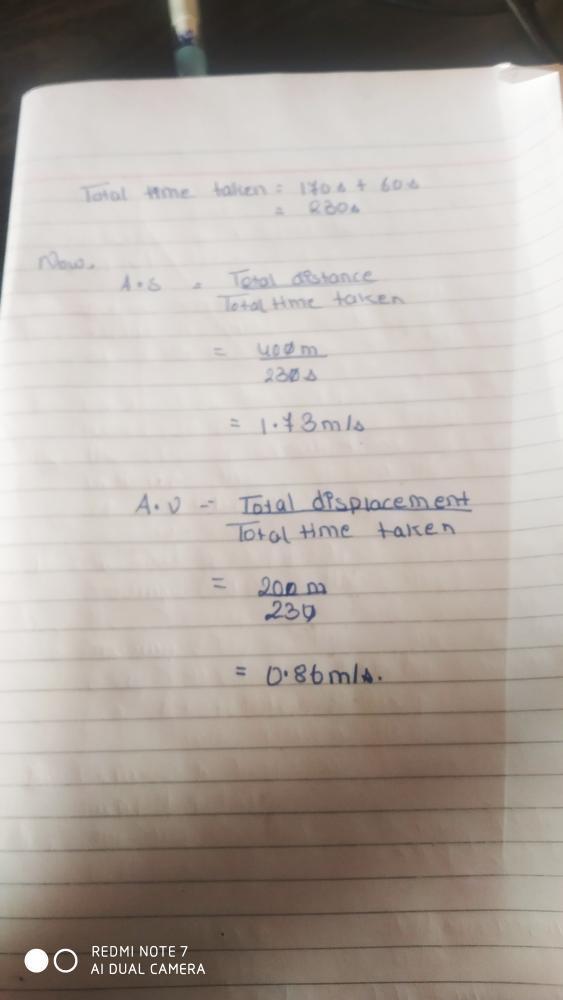 Total time taken = 170s + 60s
= 230s
Now,
A.S = Total distance
Total time taken
= 400m
230s
= 1.73m/s
A.V = Total displacement
Total time taken
= 200m
230
= 0.86m/s.
REDMI NOTE 7
AI DUAL CAMERA